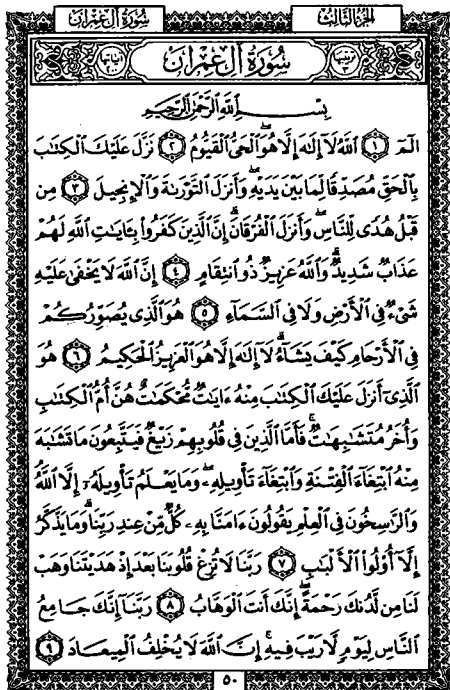 الجزء الثالث
سورة آل عمران
ترتيبها ٣
سُورَةُ آلِ عِمْرَان
آياتها ٢٠٠
بِسْمِ ٱللَّهِ ٱلرَّحْمَٰنِ ٱلرَّحِيمِ
الٓمٓ ١ ٱللَّهُ لَآ إِلَٰهَ إِلَّا هُوَ ٱلْحَىُّ ٱلْقَيُّومُ ٢ نَزَّلَ عَلَيْكَ ٱلْكِتَٰبَ
بِٱلْحَقِّ مُصَدِّقًا لِّمَا بَيْنَ يَدَيْهِ وَأَنزَلَ ٱلتَّوْرَىٰةَ وَٱلْإِنجِيلَ ٣ مِن
قَبْلُ هُدًى لِّلنَّاسِ وَأَنزَلَ ٱلْفُرْقَانَ إِنَّ ٱلَّذِينَ كَفَرُوا۟ بِـَٔايَٰتِ ٱللَّهِ لَهُمْ
عَذَابٌ شَدِيدٌ وَٱللَّهُ عَزِيزٌ ذُو ٱنتِقَامٍ ٤ إِنَّ ٱللَّهَ لَا يَخْفَىٰ عَلَيْهِ
شَىْءٌ فِى ٱلْأَرْضِ وَلَا فِى ٱلسَّمَآءِ ٥ هُوَ ٱلَّذِى يُصَوِّرُكُمْ
فِى ٱلْأَرْحَامِ كَيْفَ يَشَآءُ لَآ إِلَٰهَ إِلَّا هُوَ ٱلْعَزِيزُ ٱلْحَكِيمُ ٦ هُوَ
ٱلَّذِىٓ أَنزَلَ عَلَيْكَ ٱلْكِتَٰبَ مِنْهُ ءَايَٰتٌ مُّحْكَمَٰتٌ هُنَّ أُمُّ ٱلْكِتَٰبِ
وَأُخَرُ مُتَشَٰبِهَٰتٌ فَأَمَّا ٱلَّذِينَ فِى قُلُوبِهِمْ زَيْغٌ فَيَتَّبِعُونَ مَا تَشَٰبَهَ
مِنْهُ ٱبْتِغَآءَ ٱلْفِتْنَةِ وَٱبْتِغَآءَ تَأْوِيلِهِۦ وَمَا يَعْلَمُ تَأْوِيلَهُۥٓ إِلَّا ٱللَّهُ
وَٱلرَّٰسِخُونَ فِى ٱلْعِلْمِ يَقُولُونَ ءَامَنَّا بِهِۦ كُلٌّ مِّنْ عِندِ رَبِّنَا وَمَا يَذَّكَّرُ
إِلَّآ أُو۟لُوا۟ ٱلْأَلْبَٰبِ ٧ رَبَّنَا لَا تُزِغْ قُلُوبَنَا بَعْدَ إِذْ هَدَيْتَنَا وَهَبْ
لَنَا مِن لَّدُنكَ رَحْمَةً إِنَّكَ أَنتَ ٱلْوَهَّابُ ٨ رَبَّنَآ إِنَّكَ جَامِعُ
ٱلنَّاسِ لِيَوْمٍ لَّا رَيْبَ فِيهِ إِنَّ ٱللَّهَ لَا يُخْلِفُ ٱلْمِيعَادَ ٩
٥٠